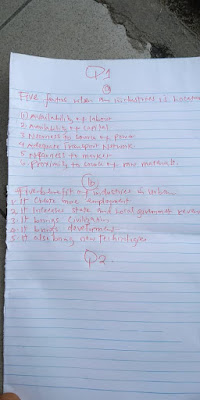 Q1
Five factors when an industrial is located
1) Availability of labour
2 Availability of capital
3 Nearness to source of power
4 Adequate Transport Network
5 nearness to market
6 Proximity to source of raw materials
of establishment of industries in
1. It create more employment
2. It increases state and local government revenue
3 It brings civilization
4 It brings development
5. It also bring new technologies
Q2.